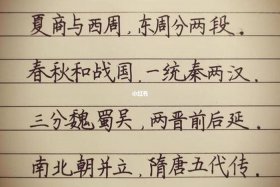 夏商与西周，东周分两段。
春秋和战国，一统秦两汉。
小红书
三分魏蜀吴，两晋前后延。
南北朝并立，隋唐五代传。